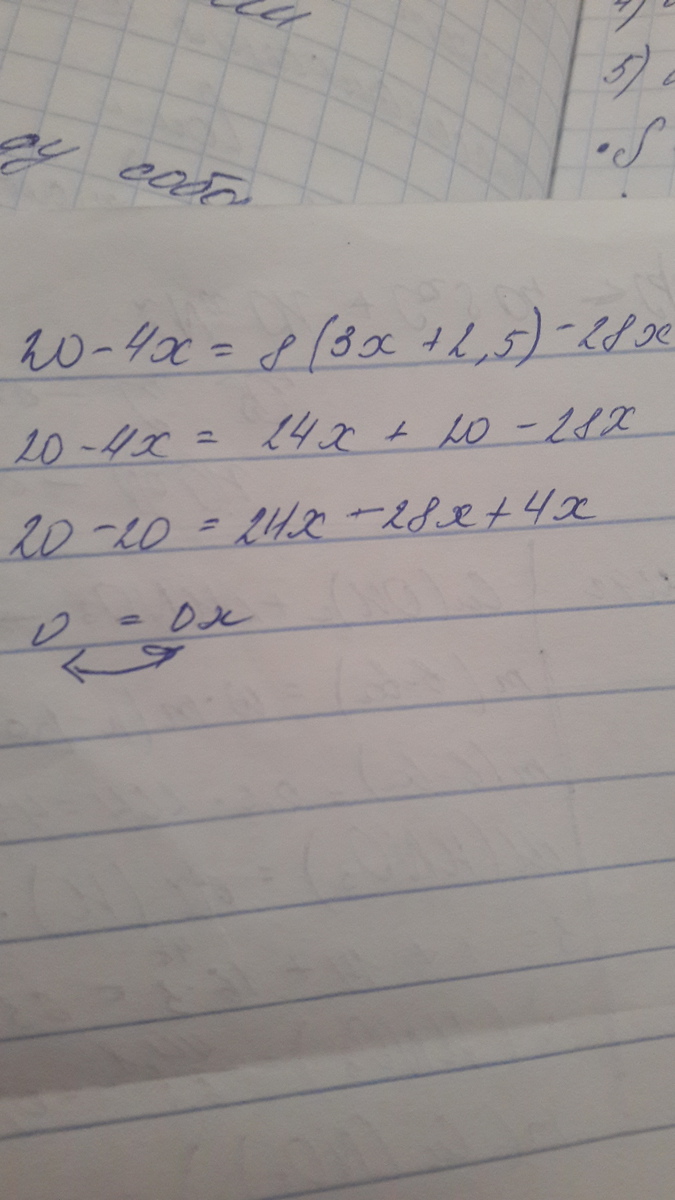 4)
5)
собо
20 - 4x = 8(3x + 2,5) - 28x
20 - 4x = 24x + 20 - 28x
20 - 20 = 24x - 28x + 4x
0 = 0x